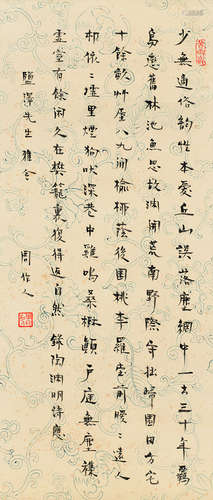 少無適俗韻性本愛丘山誤落塵網中一去三十年羈
鳥戀舊林池魚思故淵開荒南野際守拙歸園田方宅
十餘畝艸屋八九間榆柳蔭後園桃李羅堂前曖〻遠人
邨依〻墟里煙狗吠深巷中雞鳴桑樹顛戶庭無塵襍
虛室有餘閒久在樊籠裏復得返自然 錄陶淵明詩應
鹽澤先生雅令
周作人